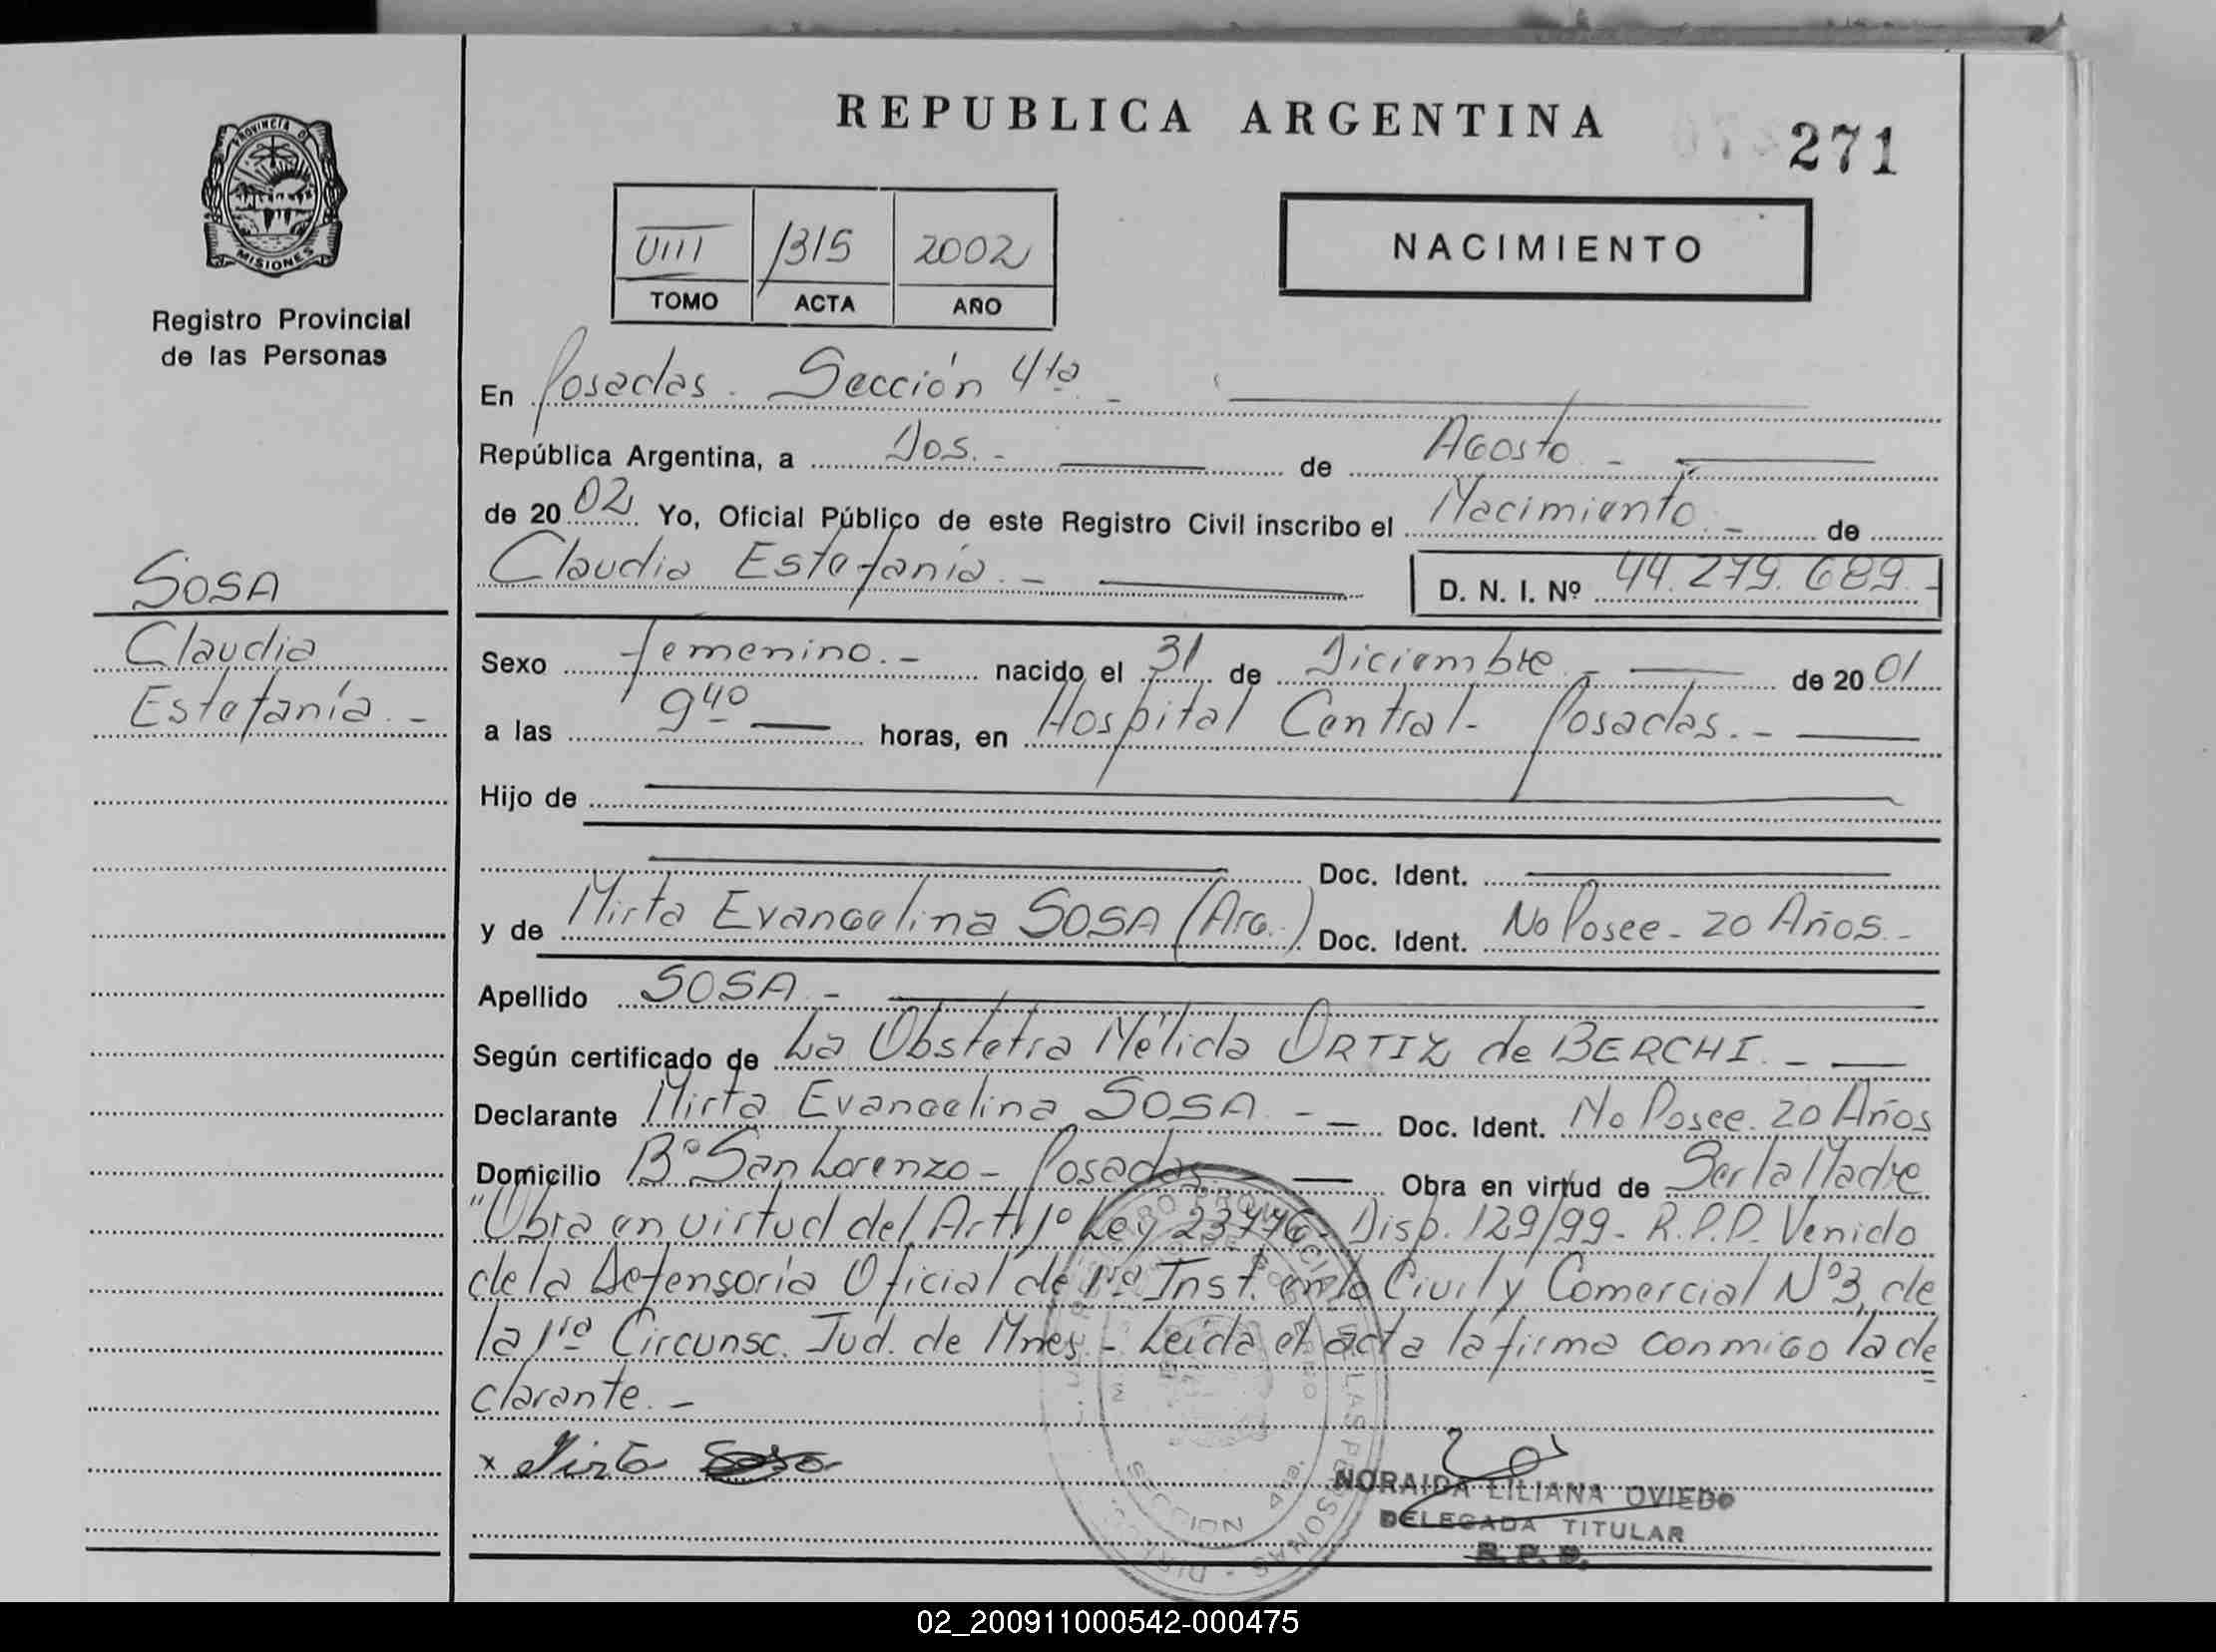 REPUBLICA ARGENTINA
271
PROVINCIA DE
MISIONES
Registro Provincial
de las Personas
VIII 1315 2002
TOMO ACTA AÑO
NACIMIENTO
En Posadas. Sección 4ta. -
República Argentina, a Dos. - de Agosto. -
de 2002 Yo, Oficial Público de este Registro Civil inscribo el Nacimiento. - de
Claudia Estefanía. - D. N. I. Nº 44.279.689.-
SOSA
Claudia
Estefanía. -
Sexo femenino. - nacido el 31 de Diciembre. - de 2001
a las 9 40 horas, en Hospital Central - Posadas. -
Hijo de
Doc. Ident.
y de Mirta Evangelina SOSA (Arg.) Doc. Ident. No Posee - 20 Años. -
Apellido SOSA. -
Según certificado de La Obstetra Nélida ORTIZ de BERCHI. -
Declarante Mirta Evangelina SOSA. - Doc. Ident. No Posee. 20 Años
Domicilio Bº San Lorenzo - Posadas. - Obra en virtud de Ser la Madre
"Obra en virtud del Art. 1º Ley 23776 - Disp. 129/99 - R.P.P. Venido
de la Defensoría Oficial de 1ra Inst. en lo Civil y Comercial Nº 3, de
la 1ra Circunsc. Jud. de Mnes. - Leída el acta la firma conmigo la de
clarante. -
x Mirta Sosa
NORAIDA LILIANA OVIEDO
DELEGADA TITULAR
R. P. P.
02_200911000542-000475